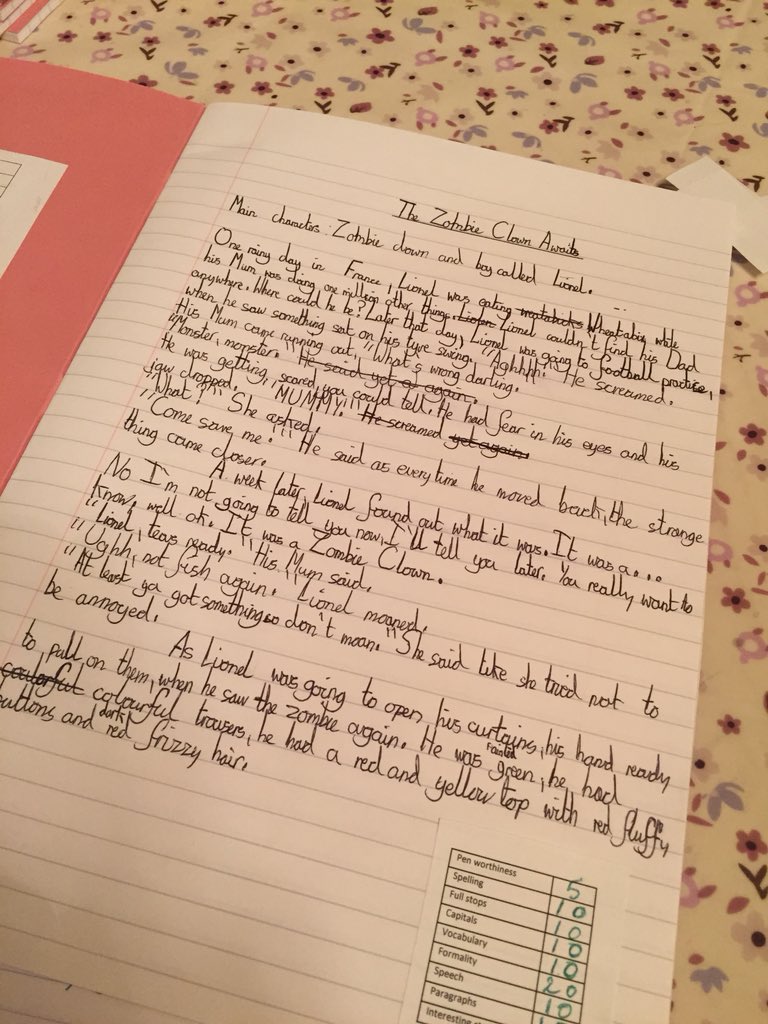 The Zombie Clown Awaits
Main characters: Zombie clown and boy called Lionel.
One rainy day in France, Lionel was eating Wheatabix while
his Mum was doing one million other things. Lionel couldn't find his Dad
anywhere. Where could he be? Later that day, Lionel was going to football practice,
when he saw something sat on his tyre swing. "Aghhhh!" He screamed.
His Mum came running out, "What's wrong darling.
"Monster, monster." He said yet again.
He was getting scared, you could tell. He had fear in his eyes and his
jaw dropped. "MUMMY!" He screamed yet again.
"What?" She asked.
"Come save me!" He said as everytime he moved back, the strange
thing came closer.
A week later, Lionel found out what it was. It was a...
No I'm not going to tell you now, I'll tell you later. You really want to
know, well ok. It was a Zombie Clown.
"Lionel, teas ready." His Mum said.
"Ughh, not fish again." Lionel moaned.
"At least ya got something so don't moan." She said like she tried not to
be annoyed.
As Lionel was going to open his curtains, his hand ready
to pull on them, when he saw the zombie again. He was green, he had
coulorful colourful trousers, he had a red and yellow top with red fluffy
buttons and dark red frizzy hair.
Pen worthiness 5
Spelling 10
Full stops 10
Capitals 10
Vocabulary 10
Formality 20
Speech 10
Paragraphs